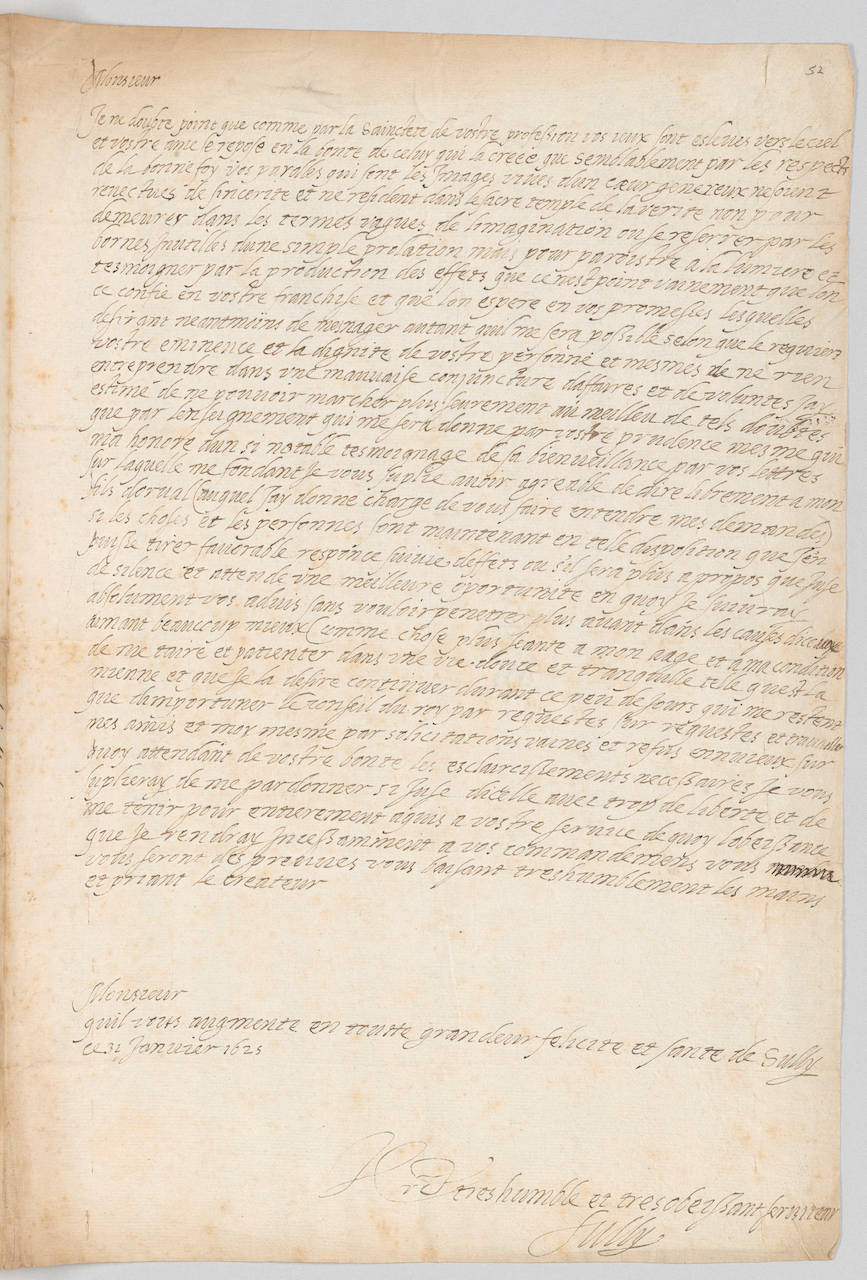 52
Monsieur
Je ne doubte point que comme par la Sainctete de vostre profession vos yeux sont eslevés vers le ciel
et vostre ame se repose en la bonte de celuy qui la créée que semblablement par les respects
de la bonne foy vos paroles qui sont les Images vives dun cœur genereux ne sount
revectues de sincerite et ne resident dans le sacre temple de la verite non pour
demeurer dans les termes vagues de limagination ou se reserrer par les
bornes inutilles dune simple prolation mais pour paroistre a la lumiere et
tesmoigner par la production des effets que ce nest point vainement que lon
ce confie en vostre franchise et que lon espere en vos promesses lesquelles
desirant neantmoins de mesnager autant quil me sera possible selon que le requiert
vostre eminence et la dignite de vostre personne et mesmes de ne rien
entreprendre dans une mauvaise conjuncture daffaires et de volantes Jay
estimé de ne pouvoir marcher plus seurement au meilleu de tels doubtes
que par lenseignement qui me sera donne par vostre prudence mesme qui
ma honoré dun si notable tesmoignage de sa bienveillance par vos lettres
sur laquelle me fondant Je vous suplie avoir agreable de dire librement a mon
fils dorval (auquel Jay donne charge de vous faire entendre mes demandes)
si les choses et les personnes sont maintenant en telle disposition que Jen
puisse tirer favorable responce suivie deffets ou sil sera plus a propos que Juse
de silence et attende une meilleure oportunite en quoy Je suivray
absolument vos advis sans vouloir penetrer plus avant dans les causes diceux
aimant beaucoup mieux (comme chose plus seante a mon aage et a ma condition
de me taire et patienter dans une vie douce et tranquille telle quest la
mienne et que Je la desire continuer durant ce peu de Jours qui me restent
que dimportuner le conseil du roy par requestes sur requestes et travailler
mes amis et moy mesme par solicitations vaines et refus ennuieux sur
quoy attendant de vostre bonte les esclaircissements necessaires Je vous
suplieray de me pardonner si Juse dicelle avec trop de liberte et de
me tenir pour entierement aquis a vostre service de quoy lobeissance
que Je rendray Incessamment a vos commandemens vous
vous seront des preuves vous baisant treshumblement les mains
et priant le createur
Monsieur
quil vous augmente en toutte grandeur felicite et sante de Sully
ce 31 Janvier 1625
Vre treshumble et tresobeissant serviteur
Sully